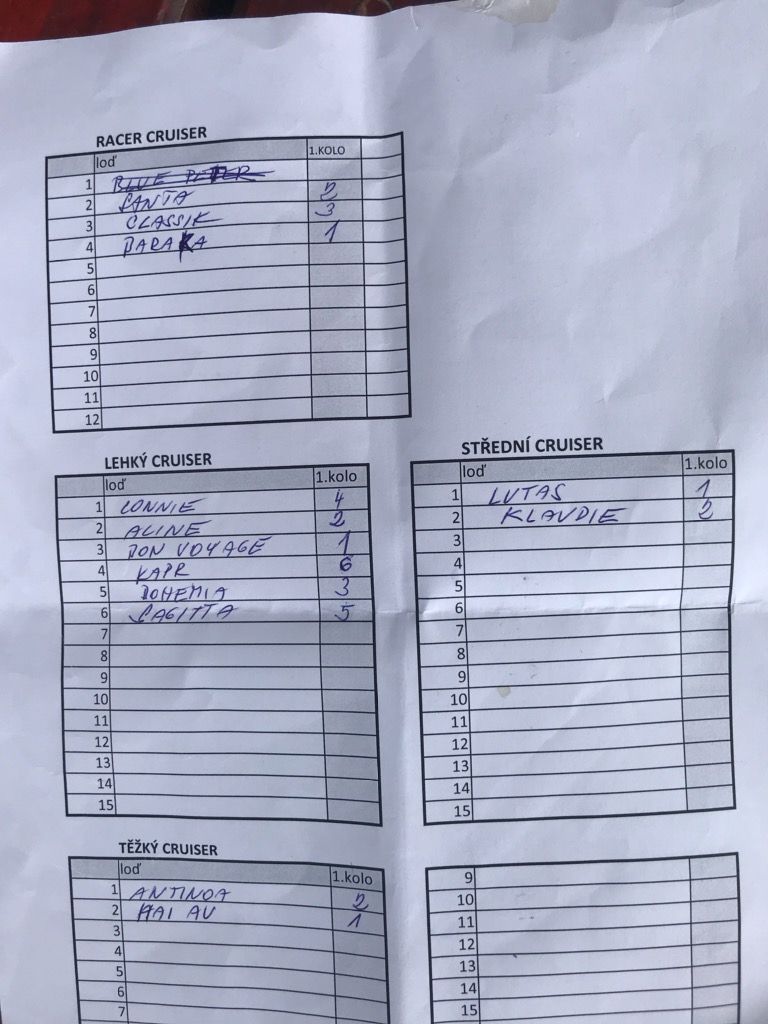 RACER CRUISER
loď 1.KOLO
1 BLUE PETER
2 SANTA 2
3 CLASSIK 3
4 BARAKA 1
5
6
7
8
9
10
11
12
LEHKÝ CRUISER
loď 1.kolo
1 CONNIE 4
2 ALINE 2
3 BON VOYAGE 1
4 KAPR 6
5 BOHEMIA 3
6 SAGITTA 5
7
8
9
10
11
12
13
14
15
STŘEDNÍ CRUISER
loď 1.kolo
1 LUTAS 1
2 KLAUDIE 2
3
4
5
6
7
8
9
10
11
12
13
14
15
TĚŽKÝ CRUISER
loď 1.kolo
1 ANTINOA 2
2 HAI AU 1
3
4
5
6
7
9
10
11
12
13
14
15